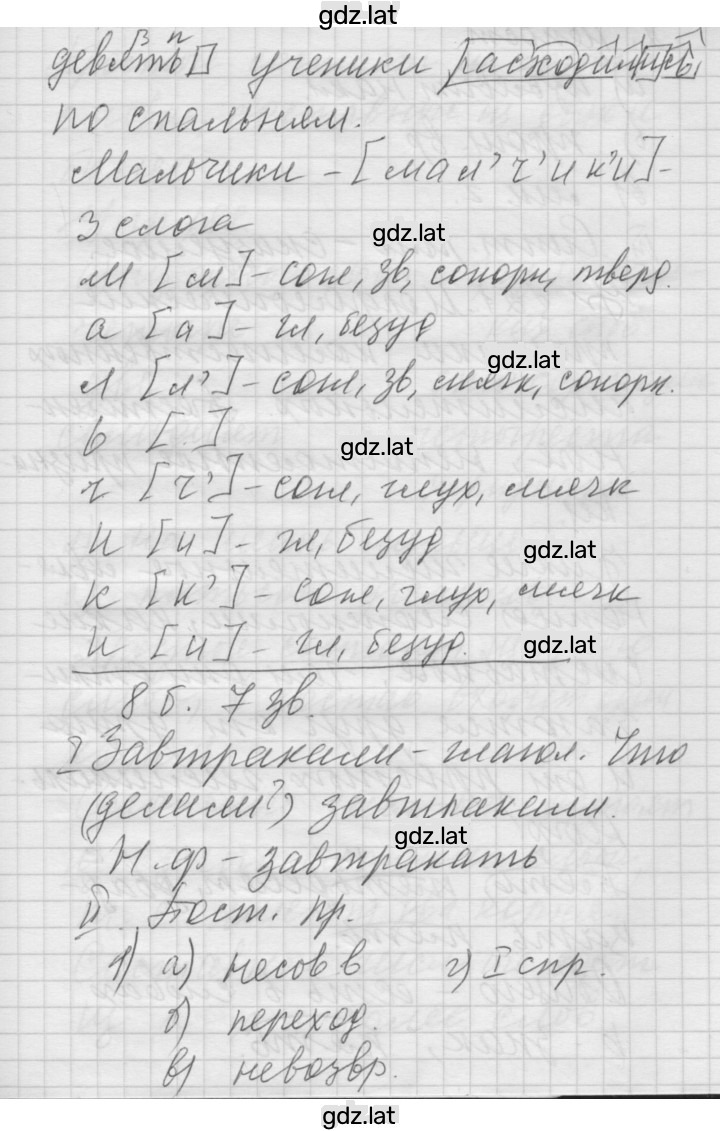 gdz.lat
девять ученики расходились
по спальням.
Мальчики – [мал’ч’ик’и] –
3 слога
gdz.lat
м [м] – согл, зв, сонорн, тверд.
а [а] – гл, безуд
gdz.lat
л [л’] – согл, зв, мягк, сонорн.
ь [ ]
gdz.lat
ч [ч’] – согл, глух, мягк
и [и] – гл, безуд
gdz.lat
к [к’] – согл, глух, мягк
и [и] – гл, безуд.
gdz.lat
8 б. 7 зв.
I Завтракали – глагол. Что
(делали?) завтракали.
gdz.lat
Н.ф – завтракать
II. Пост. пр.
1) а) несов в г) I спр.
б) переход.
в) невозвр.
gdz.lat